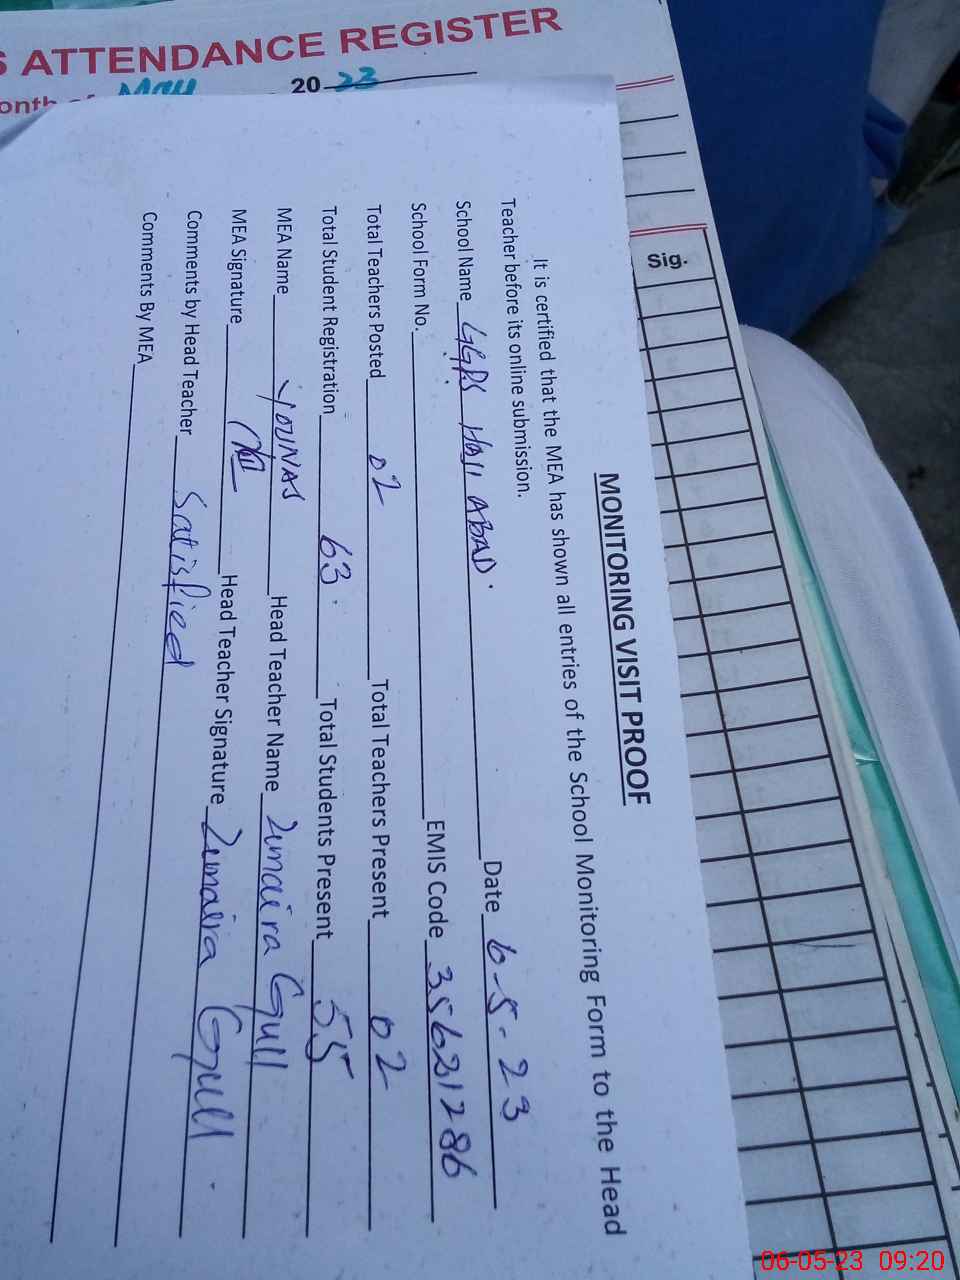 S ATTENDANCE REGISTER
May 2023
Sig.
MONITORING VISIT PROOF
It is certified that the MEA has shown all entries of the School Monitoring Form to the Head
Teacher before its online submission.
School Name GGPS HAJI ABAD. Date 6-5-23
School Form No. EMIS Code 35621286
Total Teachers Posted 02 Total Teachers Present 02
Total Student Registration 63. Total Students Present 55
MEA Name YOUNAS Head Teacher Name Zumaira Gull
MEA Signature Head Teacher Signature Zumaira Gull.
Comments by Head Teacher Satisfied
Comments By MEA
06-05-23 09:20